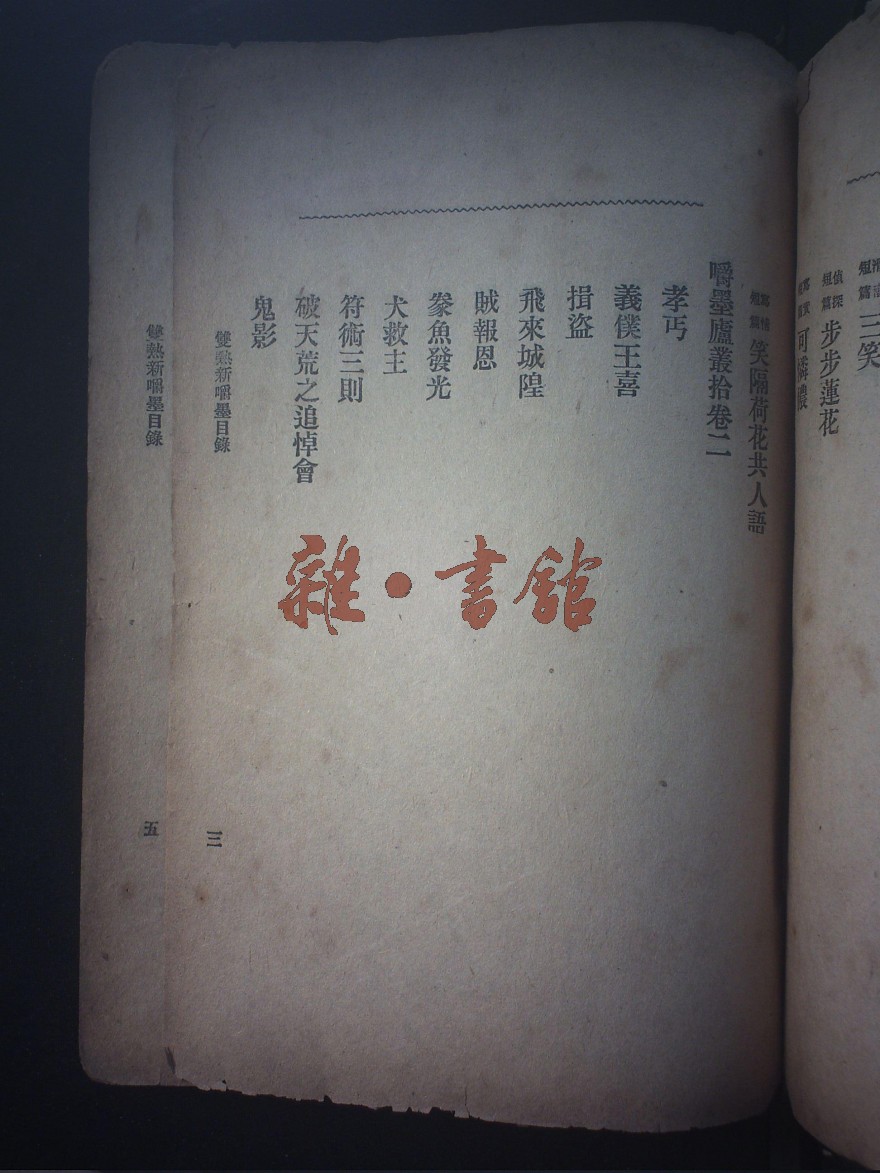 三笑
偵探短篇 步步蓮花
短篇 笑隔荷花共人語
嚼墨廬叢拾卷二
孝丐
義僕王喜
揖盜
飛來城隍
賊報恩
鱟魚發光
犬救主
符術三則
破天荒之追悼會
鬼影
雙熱新嚼墨目錄
三
雙熱新嚼墨目錄
五
雜·書館